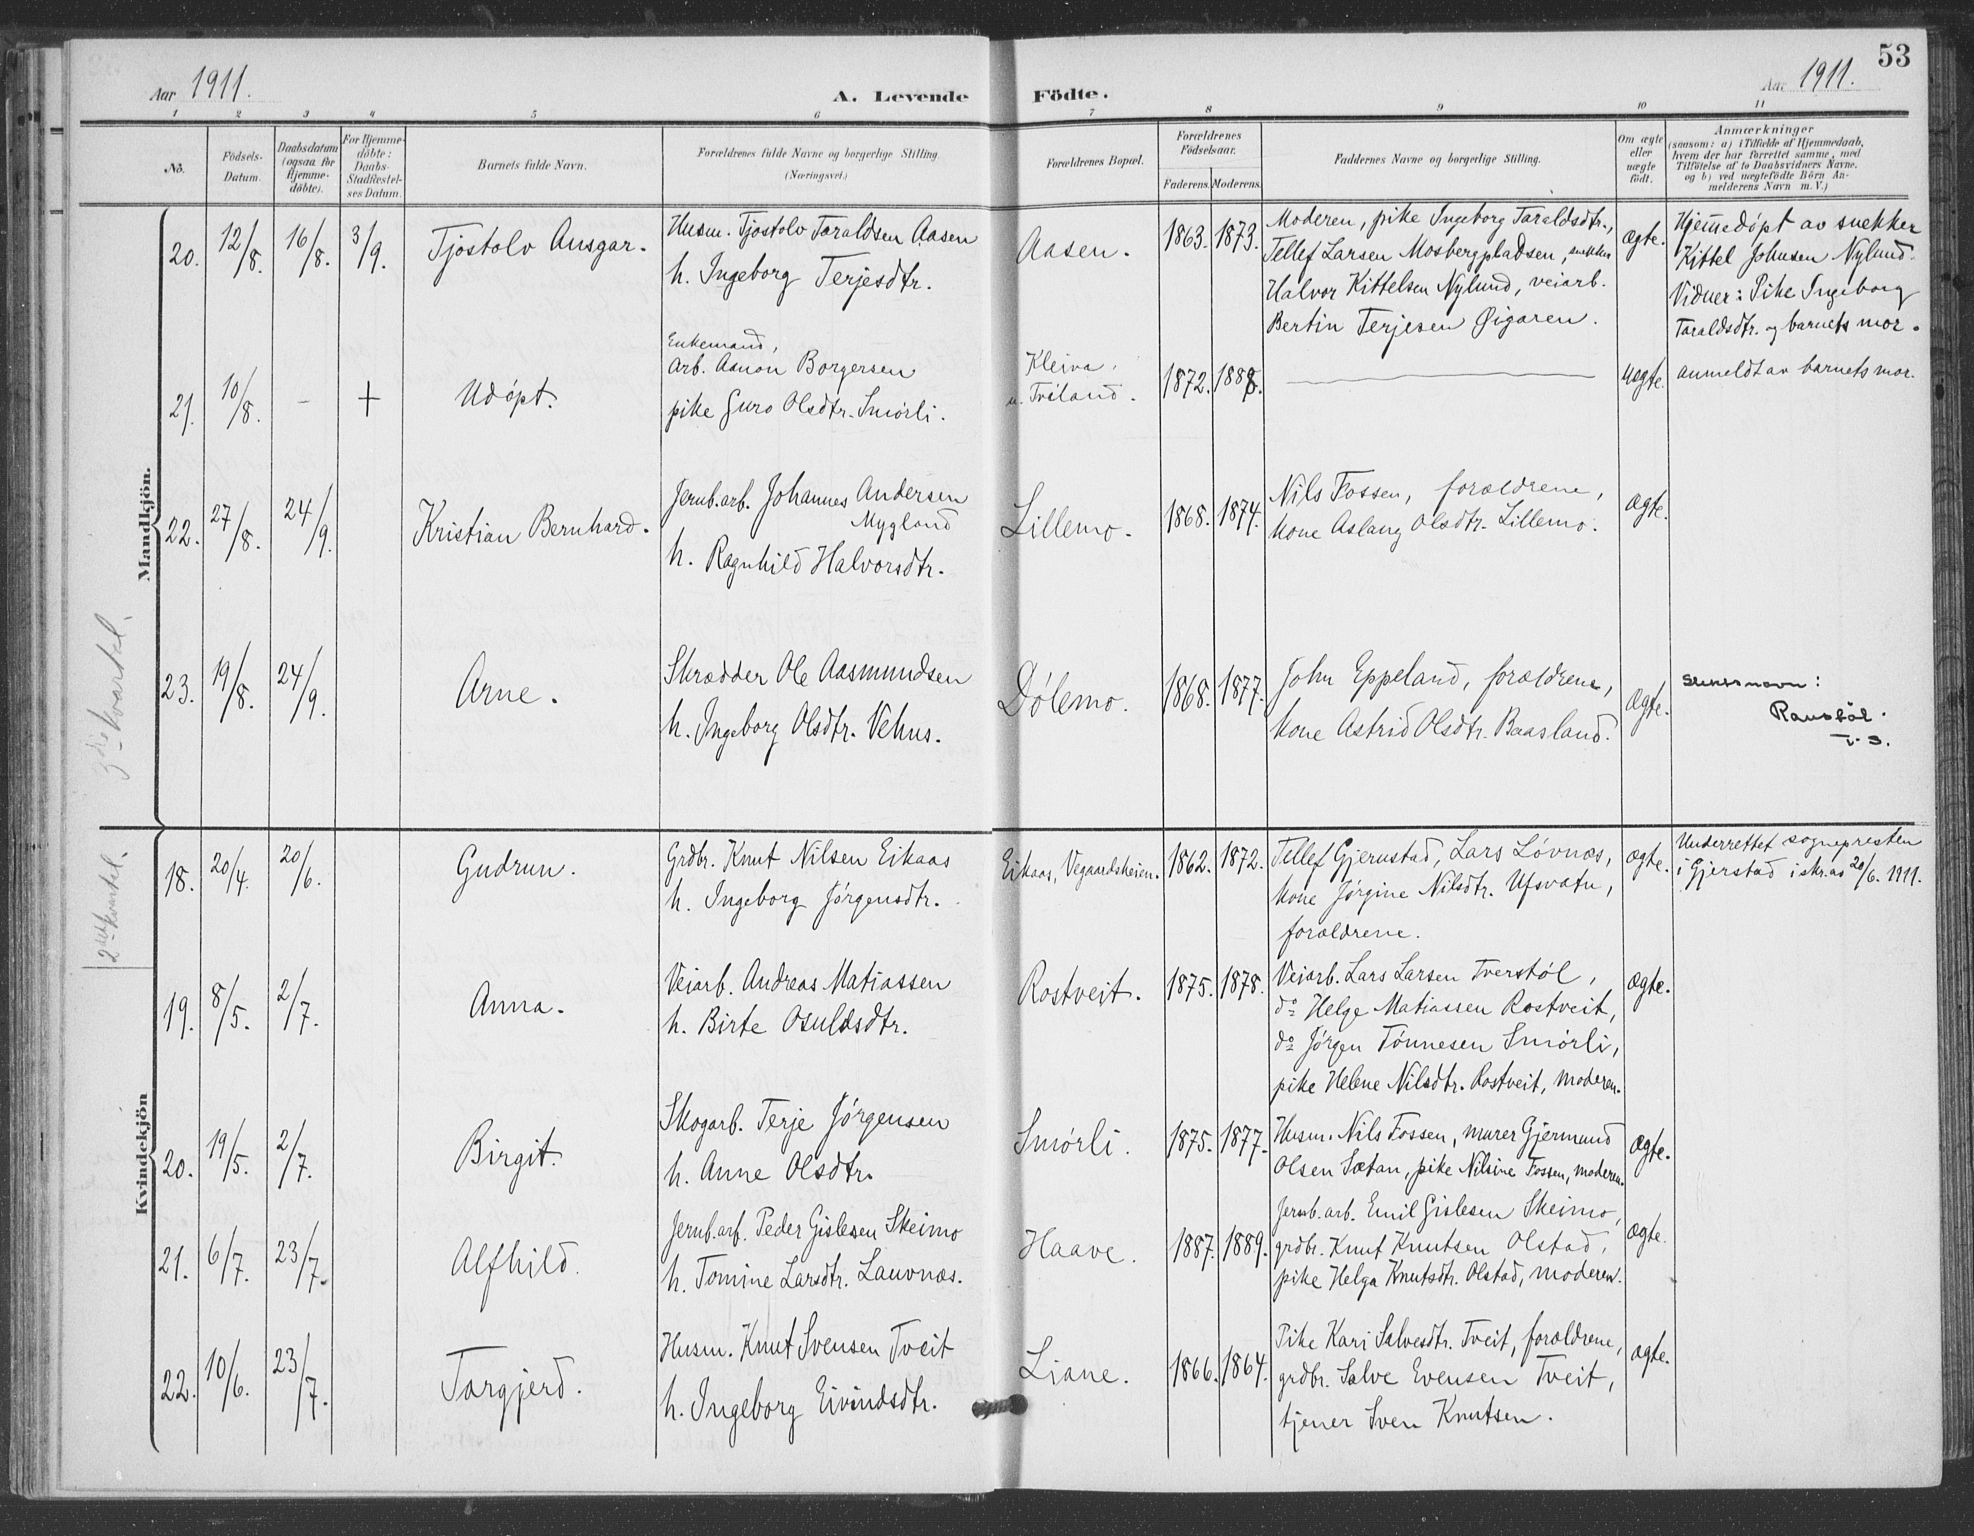 53
Aar 1911.
A. Levende Födte.
Aar 1911.
1 2 3 4 5 6 7 8 9 10 11
No.
Födsels-
Datum.
Daabsdatum
(ogsaa for
Hjemme-
döbte).
For Hjemme-
döbte:
Daabs-
Stadfæstel-
ses Datum.
Barnets fulde Navn.
Forældrenes fulde Navne og borgerlige Stilling
(Næringsvei.)
Forældrenes Bopæl.
Forældrenes
Födselsaar.
Faderens. Moderens.
Faddernes Navne og borgerlige Stilling.
Om ægte
eller
uægte
födt.
Anmærkninger
(saasom: a) i Tilfælde af Hjemmedaab,
hvem der har forrettet samme, med
Tilföielse af to Daabsvidners Navne.
og b) ved uægtefödte Börn An-
melderens Navn m. V.)
Mandkjön.
3die kvartel.
20. 12/8. 16/8. 3/9. Tjostolv Ansgar.
Husm. Tjostolv Taraldsen Aasen
h. Ingeborg Terjesdtr.
Aasen. 1863. 1873.
Moderen, pike Ingeborg Taraldsdtr.,
Tellef Larsen Mosbergpladsen, snekker
Halvor Kittelsen Nylund, veiarb.
Bertin Terjesen Øigaren.
ægte.
Hjemmedøpt av snekker
Kittel Johnsen Nylund.
Vidner: Pike Ingeborg
Taraldsdtr. og barnets mor.
21. 10/8. – + Udøpt.
Enkemand,
Arb. Aanon Borgersen
pike Guro Olsdtr. Smørli.
Kleiva,
u. Tveland.
1872. 1888.
uægte.
anmeldt av barnets mor.
22. 27/8. 24/9. Kristian Bernhard.
Jernb.arb. Johannes Andersen
Mygland
h. Ragnhild Halvorsdtr.
Lillemo. 1868. 1874.
Nils Fossen, forældrene,
kone Aslaug Olsdtr. Lillemo.
ægte.
23. 19/8. 24/9. Arne.
Skrædder Ole Aasmundsen
h. Ingeborg Olsdtr. Vehus.
Dølemo. 1868. 1877.
John Eppeland, forældrene,
kone Astrid Olsdtr. Baasland.
ægte.
Slektsnavn:
Ranstøl.
Kvindekjön
2net kvartel.
18. 20/4. 20/6. Gudrun.
Grdbr. Knut Nilsen Eikaas
h. Ingeborg Jørgensdtr.
Eikaas, Vegaardsheien. 1862. 1872.
Tellef Gjerustad, Lars Løvnæs,
kone Jørgine Nilsdtr. Ufsvatn,
forældrene.
ægte.
Underrettet sognepresten
i Gjerstad i skr. av 20/6. 1911.
19. 8/5. 2/7. Anna.
Veiarb. Andreas Matiassen
h. Birte Osuldsdtr.
Rostveit. 1875. 1878.
Veiarb. Lars Larsen Tverstøl,
do Helge Matiassen Rostveit,
do Jørgen Tønnesen Smørli,
pike Helene Nilsdtr. Rostveit, moderen.
ægte.
20. 19/5. 2/7. Birgit.
Skogarb. Terje Jørgensen
h. Anne Olsdtr.
Smørli. 1875. 1877.
Husm. Nils Fossen, murer Gjermund
Olsen Sætan, pike Nilsine Fossen, moderen.
ægte.
21. 6/7. 23/7. Alfhild.
Jernb.arb. Peder Gislesen Skeimo
h. Tomine Larsdtr. Lauvnæs.
Haave. 1887. 1889.
Jernb.arb. Emil Gislesen Skeimo,
grdbr. Knut Knutsen Olstad,
pike Helga Knutsdtr. Olstad, moderen.
ægte.
22. 10/6. 23/7. Torgjerd.
Husm. Knut Svensen Tveit
h. Ingeborg Eivindsdtr.
Liane. 1866. 1864.
Pike Kari Salvesdtr. Tveit, forældrene,
grdbr. Salve Evensen Tveit,
tjener Sven Knutsen.
ægte.